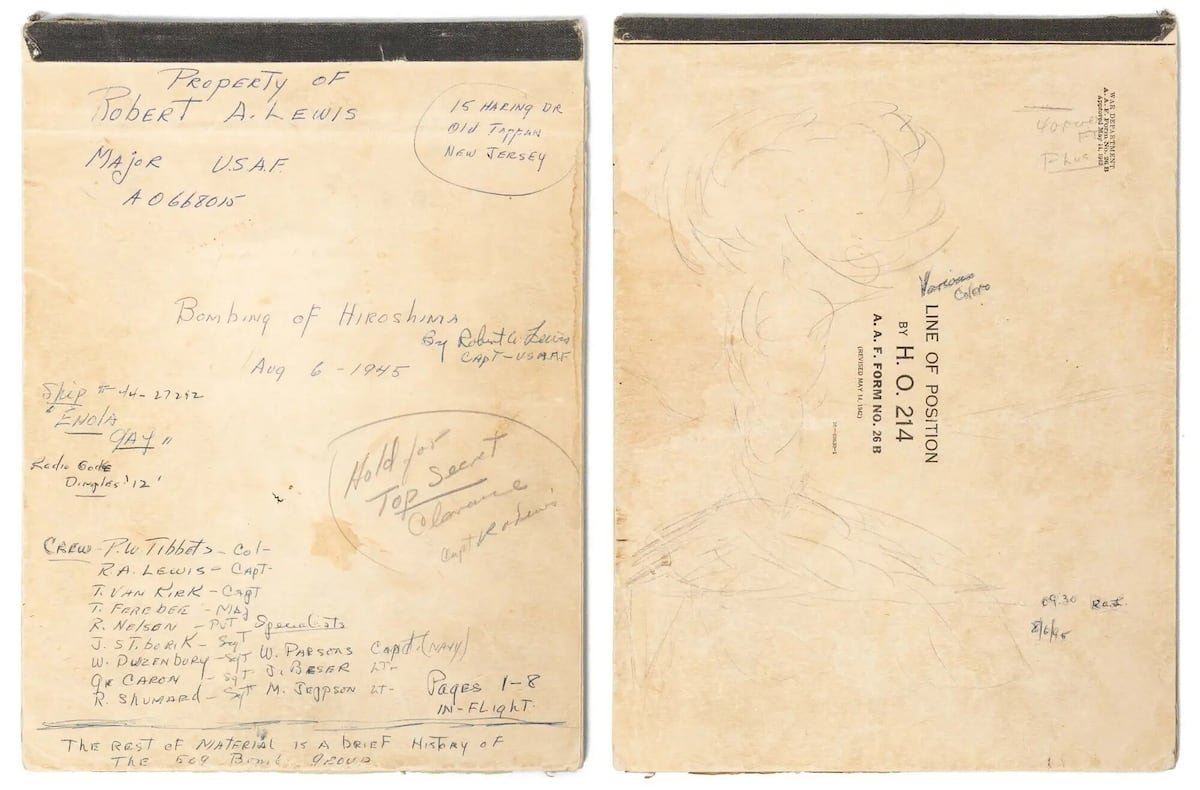 Property of
Robert A. Lewis
15 Haring Dr
Old Tappan
New Jersey
Major USAF
AO668015
Bombing of Hiroshima
By Robert A. Lewis
Capt-USAAF
Aug 6-1945
Ship # 44-27292
"Enola
Gay"
Radio Code
Dimples '12'
Hold for
Top Secret
Clearance
Capt R A Lewis
Crew - P.W Tibbets - Col-
R.A. Lewis - Capt-
T. Van Kirk - Capt
T. Ferebee - Maj
R. Nelson - Pvt
J. Stiborik - Sgt
W. Duzenbury - Sgt
G. Caron - Sgt
R. Shumard - Sgt
Specialists
W. Parsons Capt. (Navy)
J. Beser Lt-
M. Jeppson Lt-
Pages 1-8
In-Flight.
The rest of material is a brief history of
the 509 Bomb. Group
WAR DEPARTMENT
A. A. F. Form No. 26 B
Approved May 14, 1942
Plus
Various
Colors
LINE OF POSITION
BY H. O. 214
A. A. F. FORM NO. 26 B
(REVISED MAY 14, 1942)
09:30 R.A.L.
8/6/45